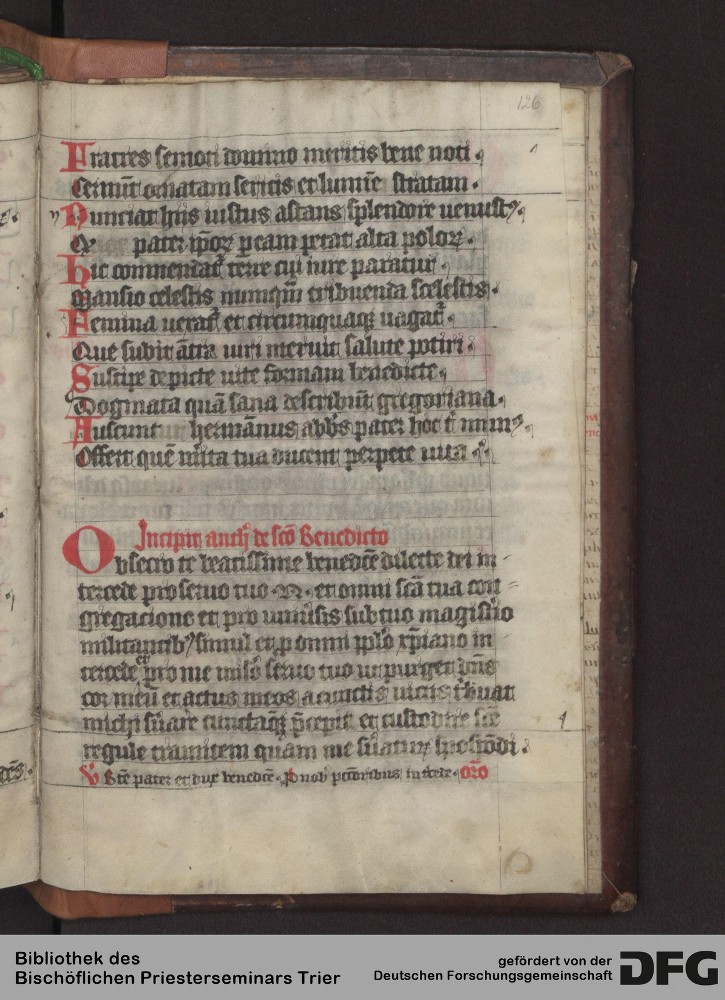 126
Fratres semoti domino meritis bene noti
Cernūt ornatam sericis et lumīe stratam.
Nunciat hiis iustus astans splendore uenustꝰ.
Qr pater ipōꝝ p eam petat alta poloꝝ.
Hic commendat᷑ terre cui iure paratur
Mansio celestis numqm̄ tribuenda scelestis.
Femina uexat᷑ et circumquaqꝫ uagat᷑.
Que subit ātra uiri meruit salute potiri.
Suscipe depicte uite formam benedicte.
Dogmata quā sana describūt gregoriana.
hermānus abbs pater hoc t̄ munꝰ
Offert quē mīta tua ducent perpete uita
Incipit de scō Benedicto
Obsecro te beatissime benedc̄e dilecte dei in
tercede pro seruo tuo .N. et omni scā tua con
gregacione et pro uniūsis sub tuo magist̄io
militantibꝰ simul et p omni pplo xp̄iano in
tercede pro me mis̄o seruo tuo ut purget dn̄s
cor meū et actus meos a cunctis uiciis t̄buat
michi s̄uare cunctaqꝫ p̄cepta et custodire sc̄e
regule tramitem quam me s̄uatuꝝ spospōdi.
V Sc̄e pater et dux benedic̄e. P nob̄ pcc̄oribus int̄cede. or̄o
Bibliothek des
Bischöflichen Priesterseminars Trier
gefördert von der
Deutschen Forschungsgemeinschaft
DFG